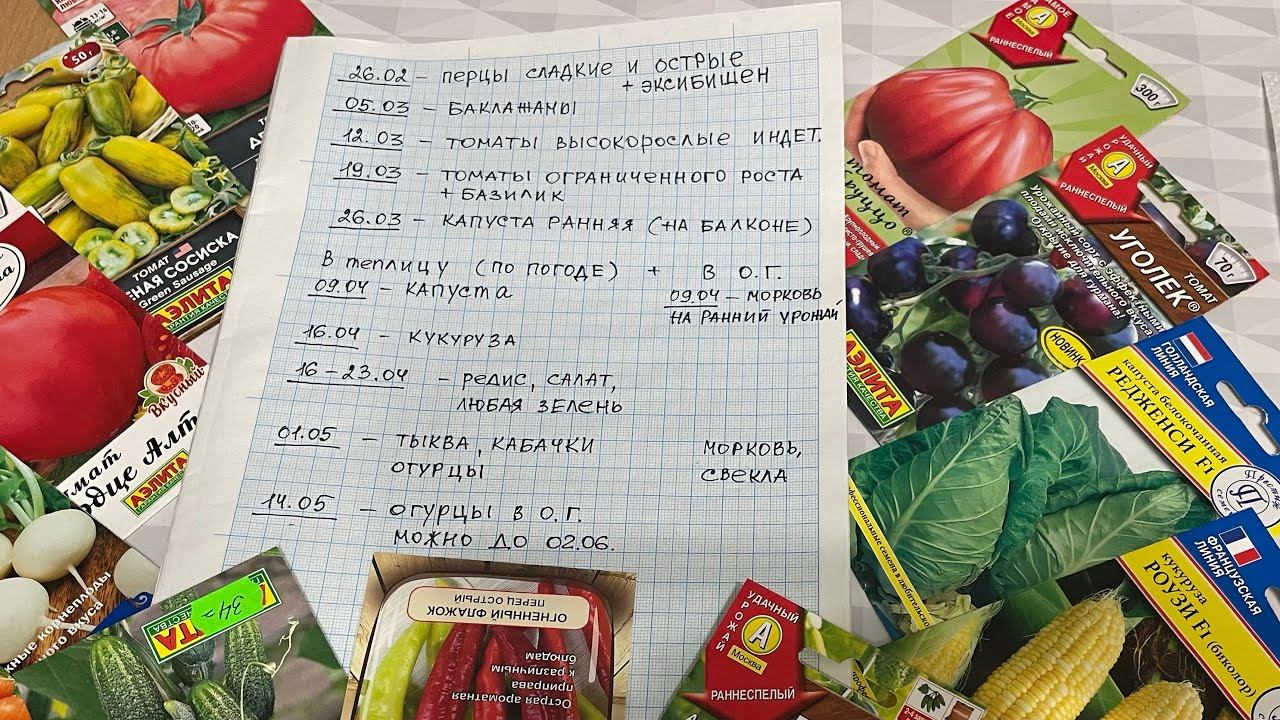 26.02 – ПЕРЦЫ СЛАДКИЕ И ОСТРЫЕ
+ ЭКСИБИШЕН
05.03 – БАКЛАЖАНЫ
12.03 – ТОМАТЫ ВЫСОКОРОСЛЫЕ ИНДЕТ.
19.03 – ТОМАТЫ ОГРАНИЧЕННОГО РОСТА
+ БАЗИЛИК
26.03 – КАПУСТА РАННЯЯ (НА БАЛКОНЕ)
В ТЕПЛИЦУ (ПО ПОГОДЕ) + В О.Г.
09.04 – КАПУСТА
09.04 – МОРКОВЬ
НА РАННИЙ УРОЖАЙ
16.04 – КУКУРУЗА
16 – 23.04 – РЕДИС, САЛАТ,
ЛЮБАЯ ЗЕЛЕНЬ
01.05 – ТЫКВА, КАБАЧКИ
ОГУРЦЫ
МОРКОВЬ,
СВЕКЛА
14.05 – ОГУРЦЫ В О.Г.
МОЖНО ДО 02.06.
50 г
ТОМАТ
СОСИСКА
Green Sausage
АЭЛИТА
Вкусный
АЭЛИТА
34-
ОГНЕННЫЙ ФЛАЖОК
ПЕРЕЦ ОСТРЫЙ
Острая ароматная
приправа
к различным
блюдам
УДАЧНЫЙ
УРОЖАЙ
А
Москва
РАННЕСПЕЛЫЙ
А
Москва
РАННЕСПЕЛЫЙ
300 г
томат
УДАЧНЫЙ
УРОЖАЙ
А
Москва
РАННЕСПЕЛЫЙ
ТОМАТ
УГОЛЕК®
70 г
НОВИНКА
АЭЛИТА
ГОЛЛАНДСКАЯ
ЛИНИЯ
капуста белокочанная
РЕДЖЕНСИ F1
ФРАНЦУЗСКАЯ
ЛИНИЯ
кукуруза
РОУЗИ F1 (биколор)